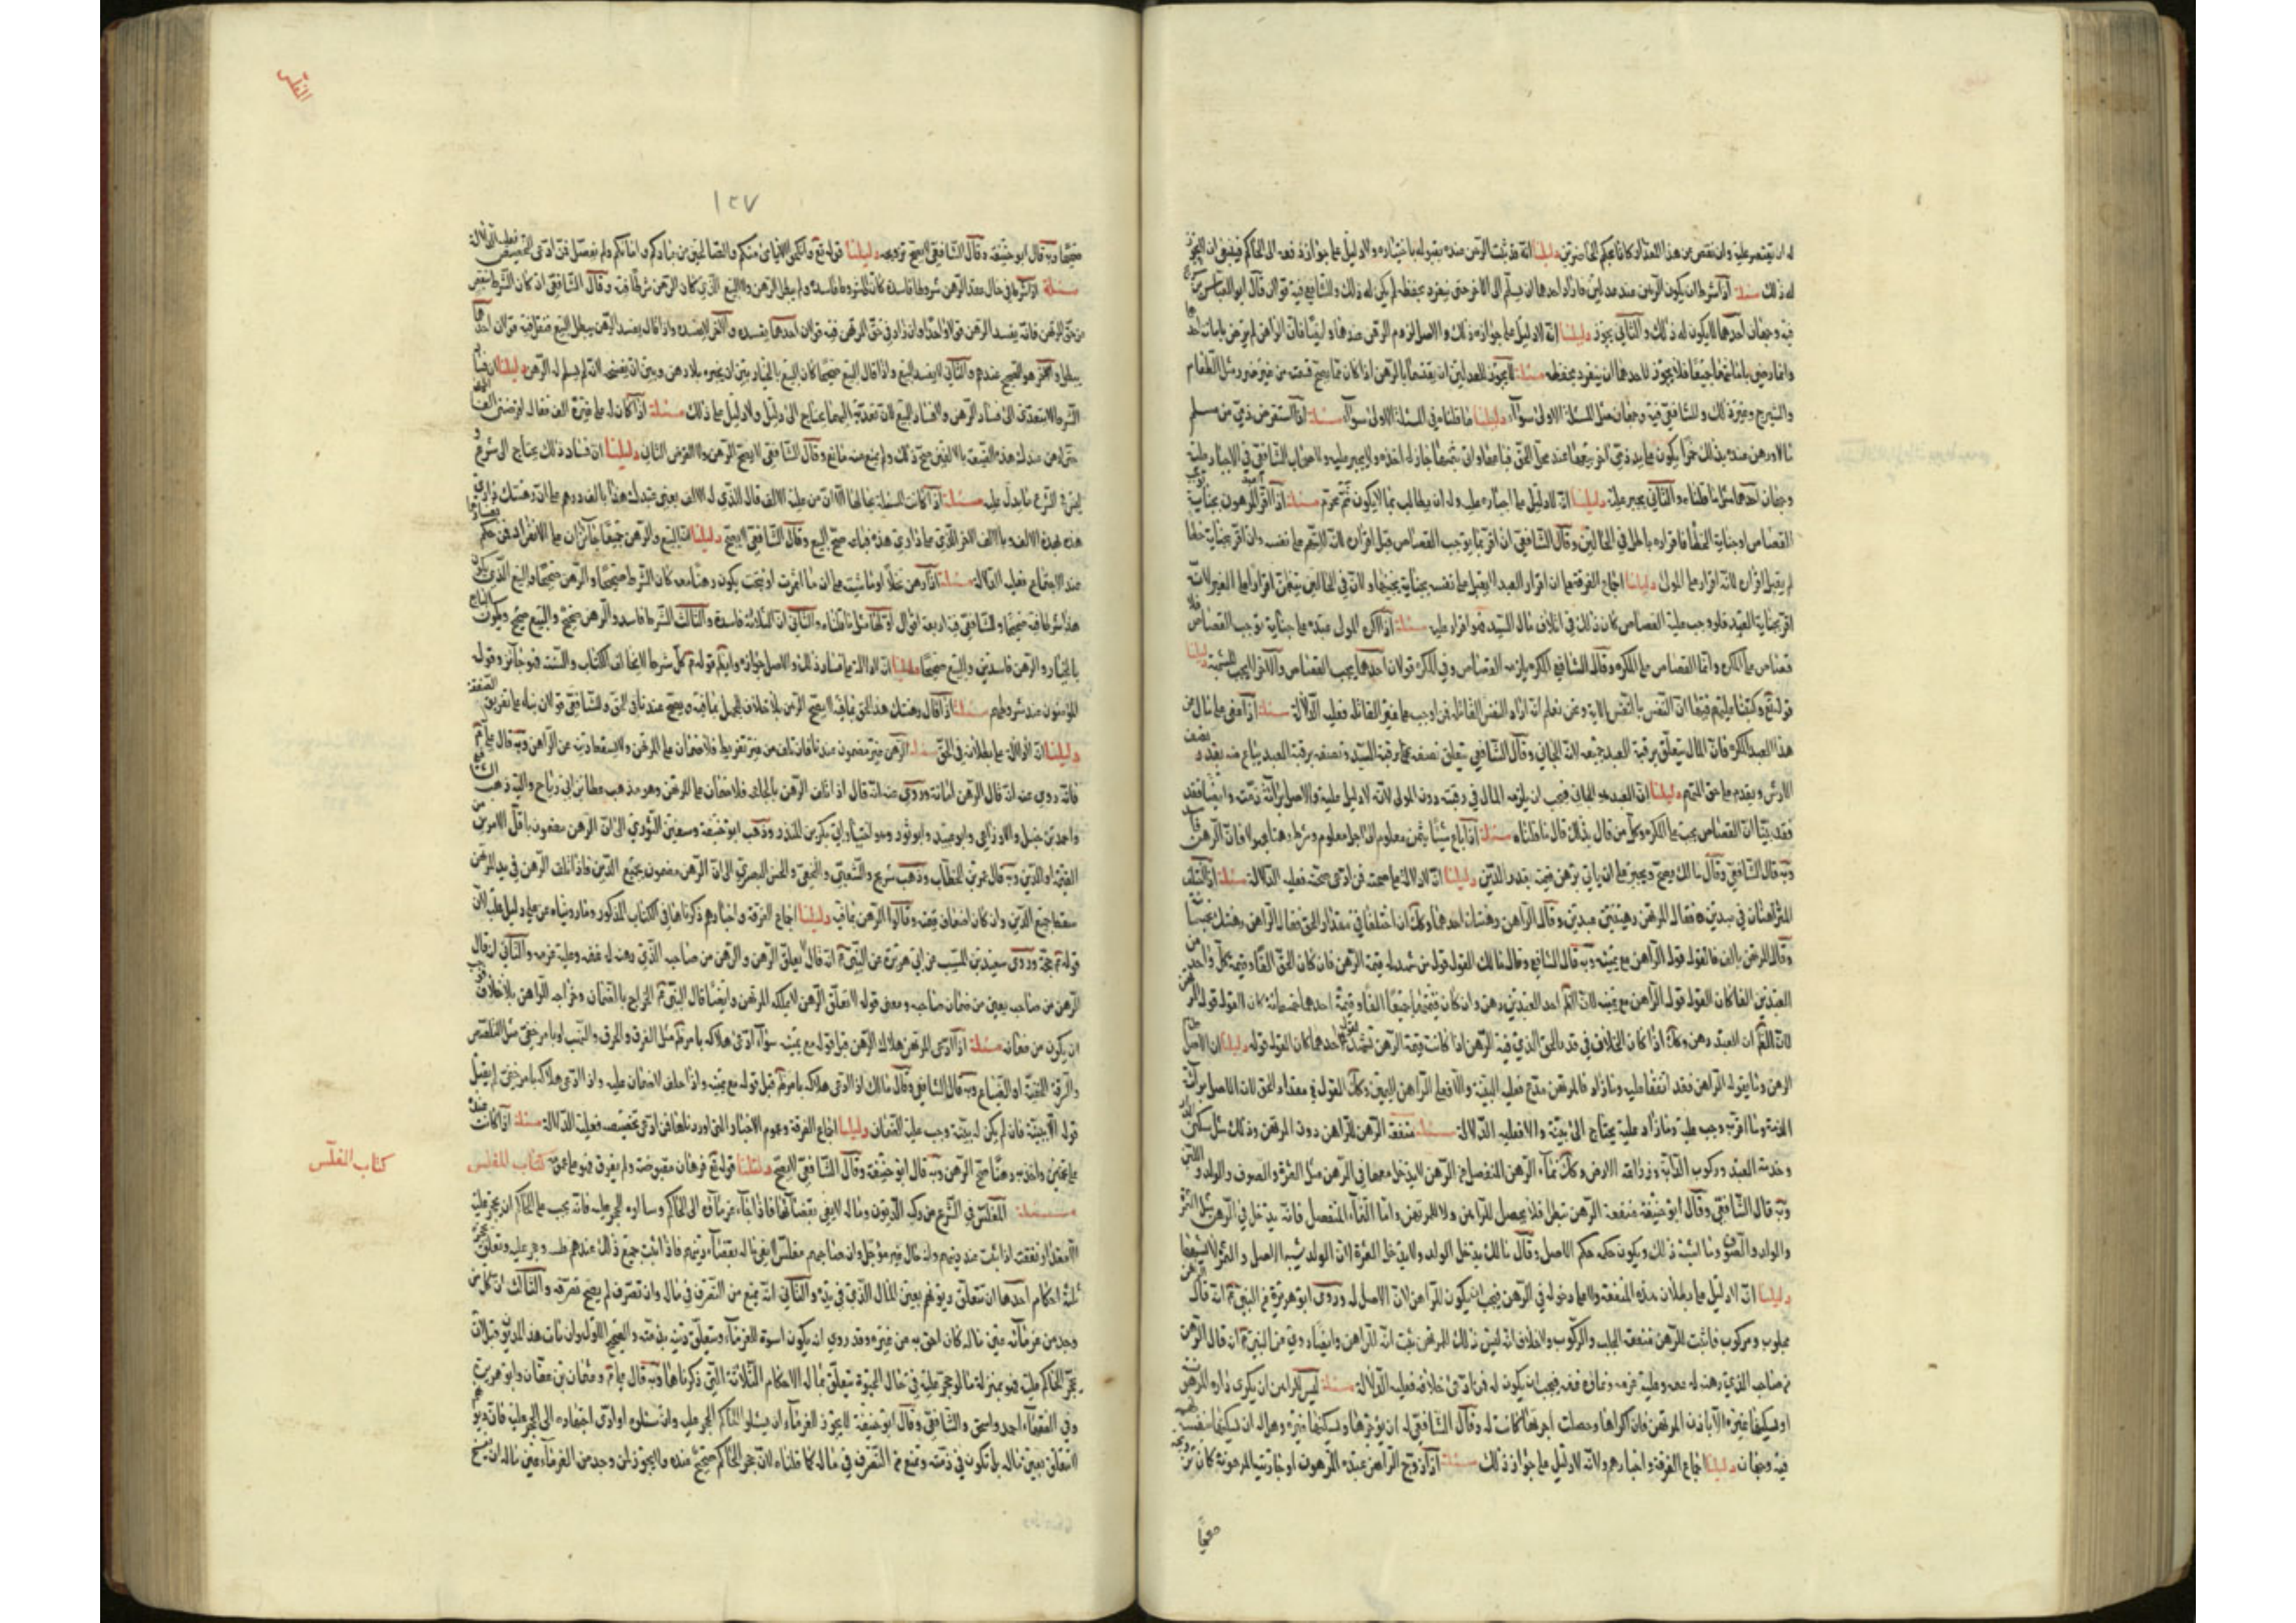 له ان يقتصر عليه وان نقص من هذا العقد ان كانا بحكم الحاضرتين دليلنا انه قد ثبت الرهن عنده بقبوله باختياره ولا دليل على جواز دفعه الى الحاكم فينبغي ان لا يجوز
له ذلك مسئلة اذا شرط ان يكون الرهن عند عدلين فاراد احدهما ان يسلم الى الاخر حتى ينفرد بحفظه لم يكن له ذلك وللشافعي فيه قولان قال ابو العباس
فيه وجهان احدهما لا يكون له ذلك والثاني يجوز دليلنا انه لا دليل على جواز ذلك والاصل لزوم الرهن عندهما وايضا فان الراهن لم يرض بامانة احدهما
وانما رضى بامانتهما جميعا فلا يجوز لاحدهما ان ينفرد بحفظه مسئلة لا يجوز للعدلين ان يقتسما بالرهن اذا كان مما يصح قسمته من غير ضرر مثل الطعام
والشيرج وغير ذلك وللشافعي فيه وجهان مثل المسئلة الاولى سواء دليلنا ما قلناه في المسئلة الاولى سواء مسئلة اذا استقرض ذمي من مسلم
مالا ورهن عنده بذلك خمرا يكون على يد ذمي اخر يبيعها عند محل الحق فباعها وان بثمنها جاز له اخذه ولا يجبر عليه ولاصحاب الشافعي في الاجبار عليه
وجهان احدهما مثل ما قلناه والثاني يجبر عليه دليلنا انه لا دليل على اجباره عليه وله ان يطالب بما لا يكون ثمن محرم مسئلة اذا اقر المرهون بجناية
القصاص او جناية الخطأ فاقراره باطل في الحالين وقال الشافعي ان اقر بما يوجب القصاص قبل اقراره لانه لا يتهم على نفسه وان اقر بجناية خطأ
لم يقبل اقراره لانه اقرار على المولى دليلنا اجماع الفرقة على ان اقرار العبد لا يقبل على نفسه بجناية يجنيها ولان في الحالين يتضمن اقراره على الغير لانه
اقر بجناية العبد فلو وجب عليه القصاص كان ذلك في اتلاف مال السيد فهو اقرار عليه مسئلة اذا اكره المولى عبده على جناية توجب القصاص
قصاص على المكره وانما القصاص على المكره وقال الشافعي المكره يلزمه القصاص وفي المكره قولان احدهما يجب القصاص والآخر لا يجب للشبهة دليلنا
قوله تع وكتبنا عليهم فيها ان النفس بالنفس الاية ونحن نعلم انه اراد النفس القاتلة فمن اوجب على غير القاتلة فعليه الدلالة مسئلة اذا عفى على مال من
هذا العبد المكره فان المال يتعلق برقبة العبد جميعه لانه الجاني وقال الشافعي يتعلق نصفه برقبة السيد ونصفه برقبة العبد يباع منه بقدر
الارش ويقدم على حق المرتهن دليلنا ان العبد هو الجاني فيجب ان يلزمه المال في رقبته دون المولى لانه لا دليل عليه والاصل براءة ذمته وايضا فقد
فقد بينا ان القصاص يجب على المكره وكل من قال بذلك قال ما قلناه مسئلة اذا باع شيئا بثمن معلوم الى اجل معلوم وشرط رهنا مجهولا فان الرهن
وبه قال الشافعي وقال مالك يصح ويجبر على ان ياتي برهن قيمته بقدر الدين دليلنا انه لا دلالة على صحته فمن ادعى صحته فعليه الدلالة مسئلة اذا اختلف
المتراهنان في عبدين فقال المرتهن رهنتني عبدين وقال الراهن رهنتك احدهما وكذلك ان اختلفا في مقدار الحق فقال الراهن رهنتك بخمسمائة
وقال المرتهن بالف فالقول قول الراهن مع يمينه وبه قال الشافعي وقال مالك القول قول من شهد له قيمة الرهن فان كان الحق الفا وقيمة كل واحد من
العبدين الفا كان القول قول الراهن مع يمينه لان الظاهر احد العبدين رهن وان كان قيمتهما جميعا الفا وقيمة احدهما خمسمائة كان القول قول المرتهن
الرهن وما يقوله الراهن فقد اتفقا عليه وما زاد فالمرتهن مدع فعليه البينة والا فعلى الراهن اليمين وكذلك القول في مقدار الحق لان الاصل براءة
الذمة وما اقر به وجب عليه وما زاد عليه يحتاج الى بينة والا فعليه الدلالة مسئلة منفعة الرهن للراهن دون المرتهن وذلك مثل سكنى الدار
وخدمة العبد وركوب الدابة وزراعة الارض وكذلك نماء الرهن المنفصل عن الرهن لا يدخل معها في الرهن مثل الثمرة والصوف والولد واللبن
وبه قال الشافعي وقال ابو حنيفة منفعة الرهن تبطل فلا يحصل للراهن ولا للمرتهن واما النماء المنفصل فانه يدخل في الرهن مثل الثمرة
والولد والصوف وما اشبه ذلك ويكون حكمه حكم الاصل وقال مالك يدخل الولد ولا يدخل الثمرة لان الولد شبيه الاصل والثمرة لا يشبهها
دليلنا انه لا دليل على بطلان هذه المنفعة ولا على دخوله في الرهن فيجب ان يكون للراهن لان الاصل له وروى ابو هريرة عن النبي انه قال الرهن
محلوب ومركوب فاثبت للرهن منفعة الحلب والركوب ولا خلاف انه ليس ذلك للمرتهن ثبت انه للراهن وايضا روي عن النبي انه قال الرهن
من صاحبه الذي رهنه له غنمه وعليه غرمه ونماؤه غنمه فيجب ان يكون له فمن ادعى خلافه فعليه الدلالة مسئلة ليس للراهن ان يكرى داره المرهونة
او يسكنها غيره الا باذن المرتهن فان اكراها وحصلت اجرتها كانت له وقال الشافعي له ان يؤجرها ويسكنها غيره وهل له ان يسكنها بنفسه
فيه وجهان دليلنا اجماع الفرقة واخبارهم ولانه لا دليل على جواز ذلك مسئلة اذا زوج الراهن عبده المرهون او جاريته المرهونة كان تزويجه
صحيحا
الفلس
١٢٧
صحيحا وبه قال ابو حنيفة وقال الشافعي لا يصح تزويجه دليلنا قوله تع وانكحوا الايامى منكم والصالحين من عبادكم وامائكم ولم يفصل فمن ادعى التخصيص فعليه الدلالة
مسئلة اذا شرطا في حال عقد الرهن شروطا فاسدة كان الشروط فاسدة ولم يبطل الرهن ولا البيع الذي كان الرهن شرطا فيه وقال الشافعي ان كان الشرط نقص
من حق المرتهن فانه يفسد الرهن قولا واحدا وان زاد في حق المرتهن فيه قولان احدهما يفسده والآخر لا يفسده واذا قال يفسد الرهن يبطل البيع فعلى قولان احدهما
يبطل والآخر هو الصحيح عندهم والثاني لا يفسد البيع واذا قال البيع صحيحا كان البايع بالخيار بين ان يجيزه بلا رهن وبين ان يفسخه لانه لم يسلم له الرهن دليلنا
الشرط لا يتعدى الى فساد الرهن ولا فساد البيع لان تعديه اليهما يحتاج الى دليل ولا دليل على ذلك مسئلة اذا كان له على غيره الف فقال اقرضني الفا
حتى ارهن عندك هذه الضيعة بالالفين صح ذلك ولم يمنع منه مانع وقال الشافعي لا يصح الرهن ولا القرض الثاني دليلنا ان فساد ذلك يحتاج الى شرع
ليس في الشرع ما يدل عليه مسئلة اذا كانت المسئلة بحالها الا ان من عليه الالف قال للذي له الالف بعني عبدك هذا بالف درهم على ان رهنتك داري
هذه بهذه الالف وبالالف الاخر الذي على داري هذه فباعه صح البيع وقال الشافعي لا يصح دليلنا ان البيع والرهن جميعا جائزان على الانفراد فمن حكم بفسادهما
عند الاجتماع فعليه الدلالة مسئلة اذا رهن نخلا او ماشية على ان ما اثمرت او نتجت يكون رهنا معه كان الشرط صحيحا والرهن صحيحا والبيع الذي يكون
هذا شرطا فيه صحيحا وللشافعي فيه اربعة اقوال اولها مثل ما قلناه والثاني ان الثلاثة فاسدة والثالث الشرط فاسد والرهن صحيح والبيع صحيح ويكون البايع
بالخيار والرهن فاسدين والبيع صحيحا دليلنا انه لا دلالة على فساد ذلك والاصل جوازه وايضا قوله كل شرط لا يخالف الكتاب والسنة فهو جائز وقوله
المؤمنون عند شروطهم مسئلة اذا قال رهنتك هذا الحق بما فيه لا يصح الرهن بلا خلاف للجهل بما فيه ويصح عندنا في الحق وللشافعي قولان بناء على تفريق الصفقة
دليلنا انه لا دلالة على بطلانه في الحق مسئلة الرهن غير مضمون عندنا فان تلف من غير تفريط فلا ضمان على المرتهن ولا يسقط دينه عن الراهن وبه قال علي
فانه روي عنه انه قال الرهن امانة وروى عنه انه قال اذا تلف الرهن بالجائحة فلا ضمان على المرتهن وهو مذهب عطا بن ابي رباح واليه ذهب الشافعي
واحمد بن حنبل والاوزاعي وابو عبيد وابو ثور وهو اختيار ابي بكر بن المنذر وذهب ابو حنيفة وسفين الثوري الى ان الرهن مضمون باقل الامرين من
القيمة او الدين وبه قال عمر بن الخطاب وذهب شريح والشعبي والنخعي والحسن البصري الى ان الرهن مضمون بجميع الدين فاذا تلف الرهن في يد المرتهن
سقط جميع الدين وان كان اضعاف قيمته وقالوا الرهن بما فيه دليلنا اجماع الفرقة واخبارهم ذكرناها في الكتاب المذكور وما رويناه عن علي دليل عليه لان
قوله حجة وروى سعيد بن المسيب عن ابي هريرة عن النبي انه قال لا يغلق الرهن والرهن من صاحبه الذي رهنه له غنمه وعليه غرمه والثاني انه قال
الرهن من صاحبه يعني من ضمان صاحبه ومعنى قوله لا يغلق الرهن لا يملكه المرتهن وايضا قال النبي الخراج بالضمان وخراجه للراهن بلا خلاف فوجب
ان يكون من ضمانه مسئلة اذا ادعى المرتهن هلاك الرهن قبل قوله مع يمينه سواء ادعى هلاكه بامر ظاهر مثل الغرق والحرق والنهب او بامر خفي مثل التلصص
والسرقة الخفية او الضياع وبه قال الشافعي وقال مالك اذا ادعى هلاكه بامر ظاهر قبل قوله مع يمينه واذا حلف لا ضمان عليه واذا ادعى هلاكه بامر خفي لم يقبل
قوله الا ببينة فان لم يكن له بينة وجب عليه الضمان دليلنا اجماع الفرقة وعموم الاخبار التي اوردناها فمن ادعى تخصيصه فعليه الدلالة مسئلة اذا كانت
كتاب الفلس
مسئلة المفلس في الشرع من ركبه الديون وماله لا يفي بقضائها فاذا جاء غرماؤه الى الحاكم وسالوه الحجر عليه فانه يجب على الحاكم ان يحجر عليه
ثلثة احكام احدها ان تتعلق ديونهم بعين المال الذي في يده والثاني انه يمنع من التصرف في ماله وان تصرف لم يصح تصرفه والثالث ان كل من
وجد من غرمائه عين ماله كان احق به من غيره وقد روي انه يكون اسوة للغرماء ويتعلق دينه بذمته والصحيح الاول وان مات هذا المديون قبل ان
يحجر الحاكم عليه فهو بمنزلة ما لو حجر عليه في حال الحيوة يتعلق بماله الاحكام الثلاثة التي ذكرناها وبه قال علي وعثمان بن عفان وابو هريرة
وفي الفقهاء احمد واسحق والشافعي وقال ابو حنيفة لا يجوز للغرماء ان يسئلوا الحاكم الحجر عليه وان سئلوه او ادى اجتهاده الى الحجر عليه فان ديونهم
لا تتعلق بعين ماله بل تكون في ذمته ويمنع من التصرف في ماله كما قلناه لان حجر الحاكم صحيح عنده ولا يجوز لمن وجد من الغرماء عين ماله ان يفسخ
كتاب الفلس